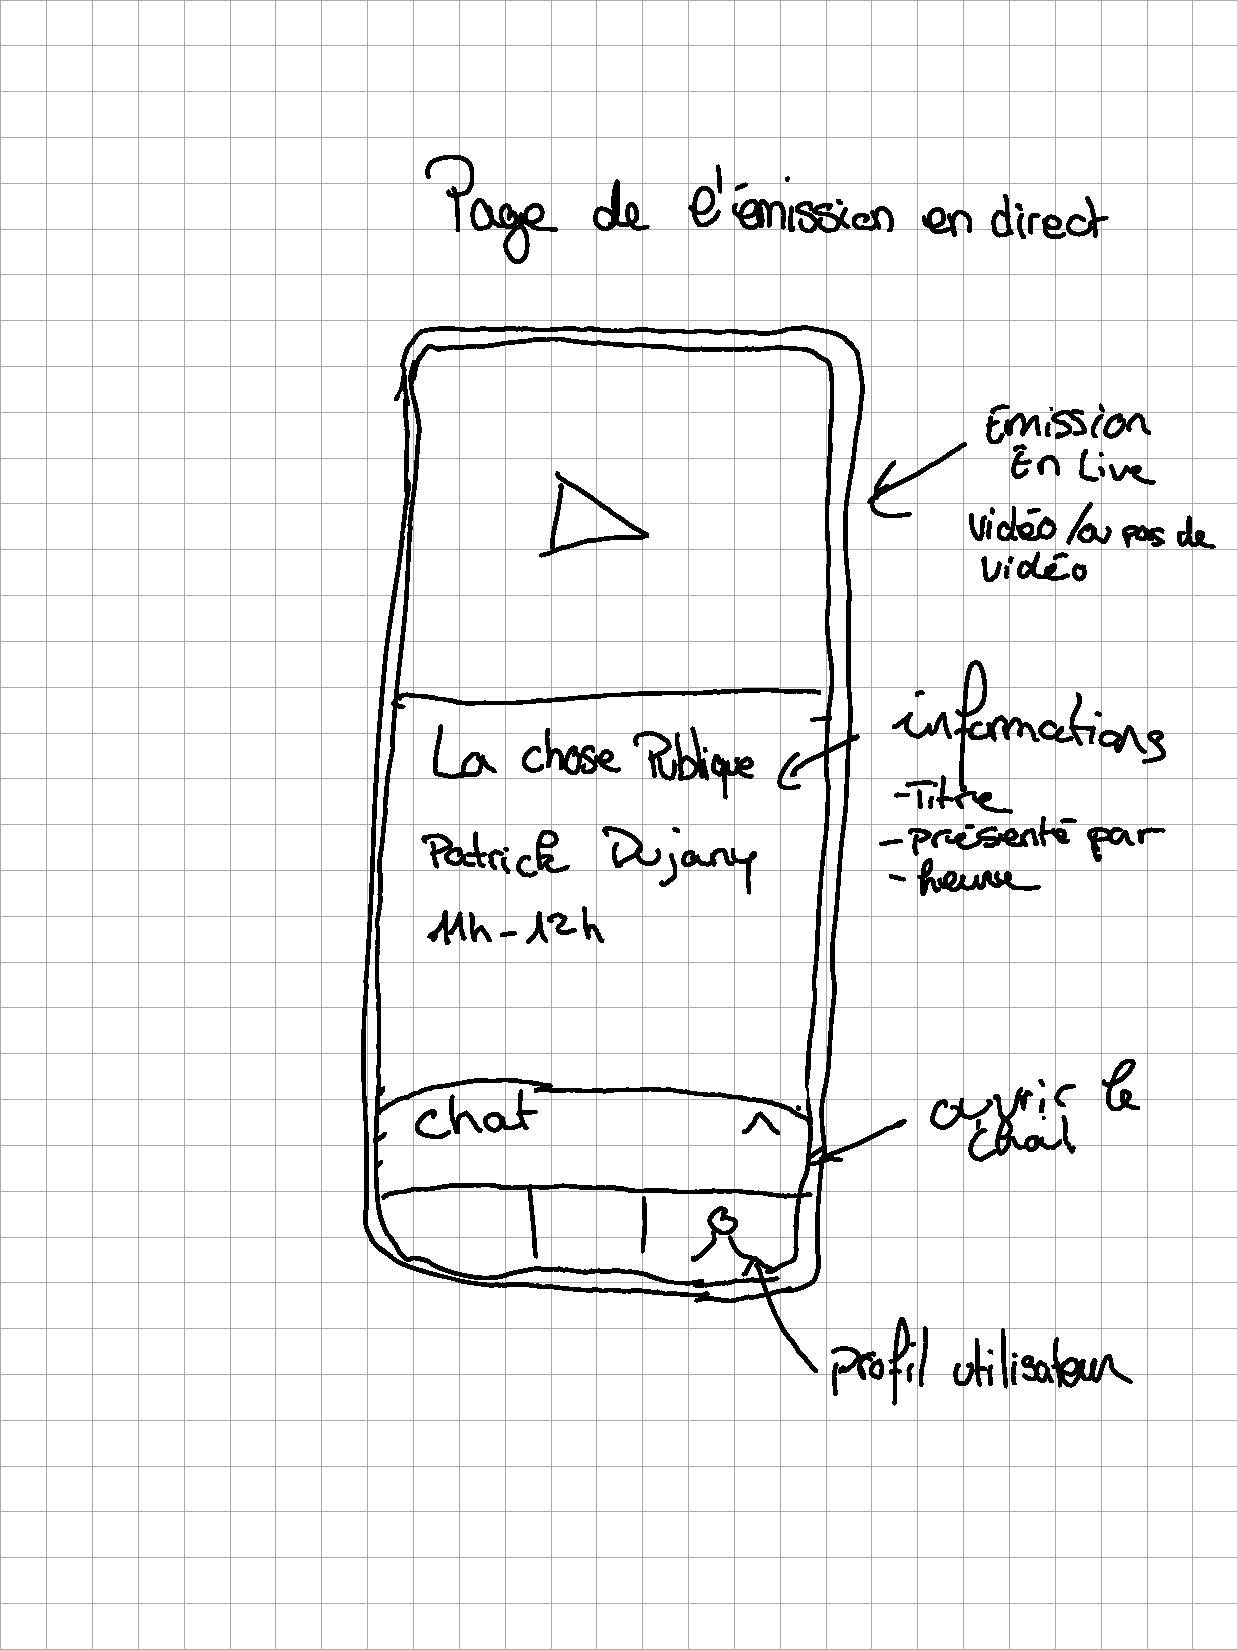 Page de l'émission en direct
Emission
En Live
vidéo/ou pas de
vidéo
La chose Publique
Patrick Dujany
11h-12h
informations
-Titre
-présenté par
-heure
chat
ouvrir le
chat
profil utilisateur